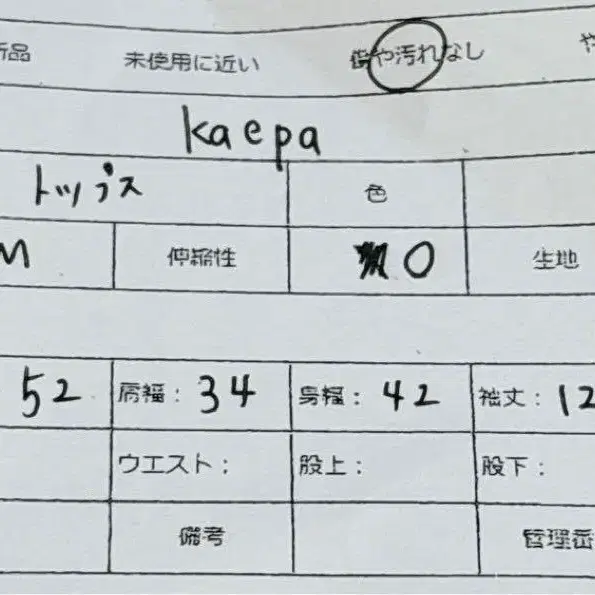 新品 未使用に近い 傷や汚れなし や
kaepa
トップス 色
M 伸縮性 0 生地
52 肩幅: 34 身幅: 42 袖丈: 12
ウエスト: 股上: 股下:
備考 管理番